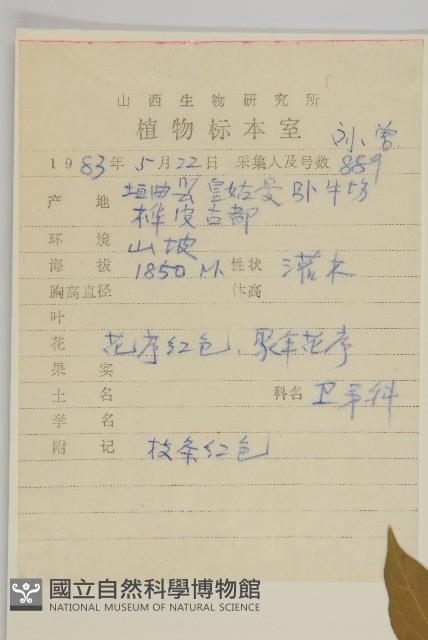 山西生物研究所
植物标本室
刘小曾
1983年5月22日 采集人及号数 889
产地 垣曲县皇姑曼卧牛场
桦皮古都
环境 山坡
海拔 1850 M. 性状 灌木
胸高直径 体高
叶
花 花序红色、聚伞花序
果实
土名 科名 卫茅科
学名
附记 枝条红色
國立自然科學博物館
NATIONAL MUSEUM OF NATURAL SCIENCE